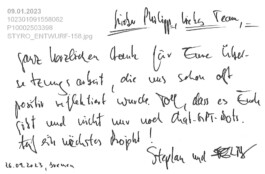 09.01.2023
102391091558082
P10002503398
STYRO_ENTWURF-158.jpg
Lieber Philipp, liebes Team,
ganz herzlichen Dank für Eure Über-
setzungsarbeit, die uns schon oft
positiv reflektiert wurde. Toll, dass es Euch
gibt und nicht nur noch Chat-GPT-Bots.
Auf ein nächstes Projekt!
Stephan und
16.09.2023, Bremen